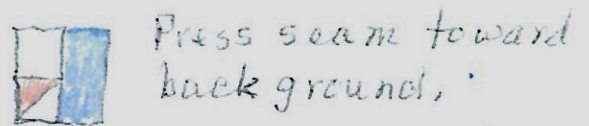 Press seam toward
background.